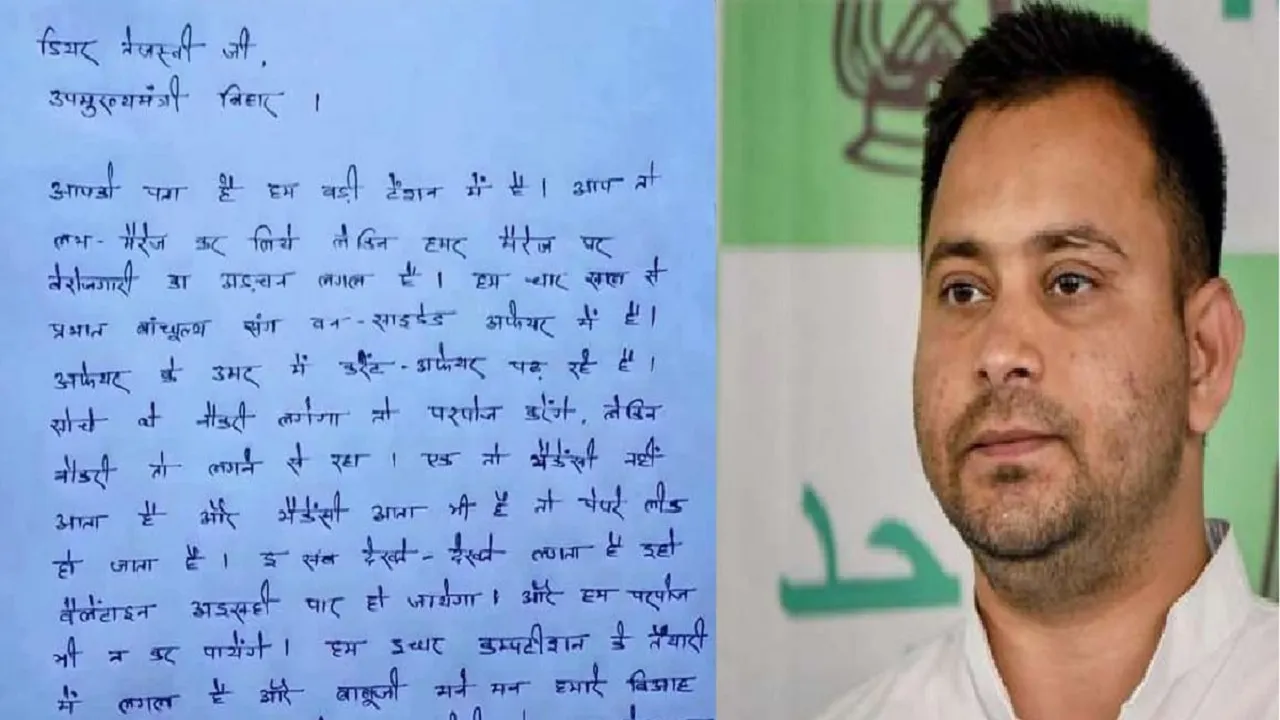 डियर तेजस्वी जी,
उपमुख्यमंत्री बिहार ।
आपको पता है हम बड़ी टेंशन में है । आप तो
लभ - मैरेज कर लिये लेकिन हमर मैरेज पर
बेरोजगारी का अड़चन लगल है । हम चार साल से
प्रभात बांधुल्य संग वन - साइडेड अफेयर में है ।
अफेयर के उमर में करेंट - अफेयर पढ़ रहे है ।
सोचे थे नौकरी लगेगा तो परपोज करेंगे, लेकिन
नौकरी तो लगने से रहा । एक तो भैकेंसी नहीं
आता है और भैकेंसी आता भी है तो पेपरे लीक
हो जाता है । इ सब देखते - देखते लगता है इहो
वैलेंटाइन अइसही पार हो जायेगा । और हम परपोज
भी न कर पायेंगे । हम इधर कम्पटीशन के तैयारी
में लगल है और बाबूजी मने मन हमारे बिआह
حد